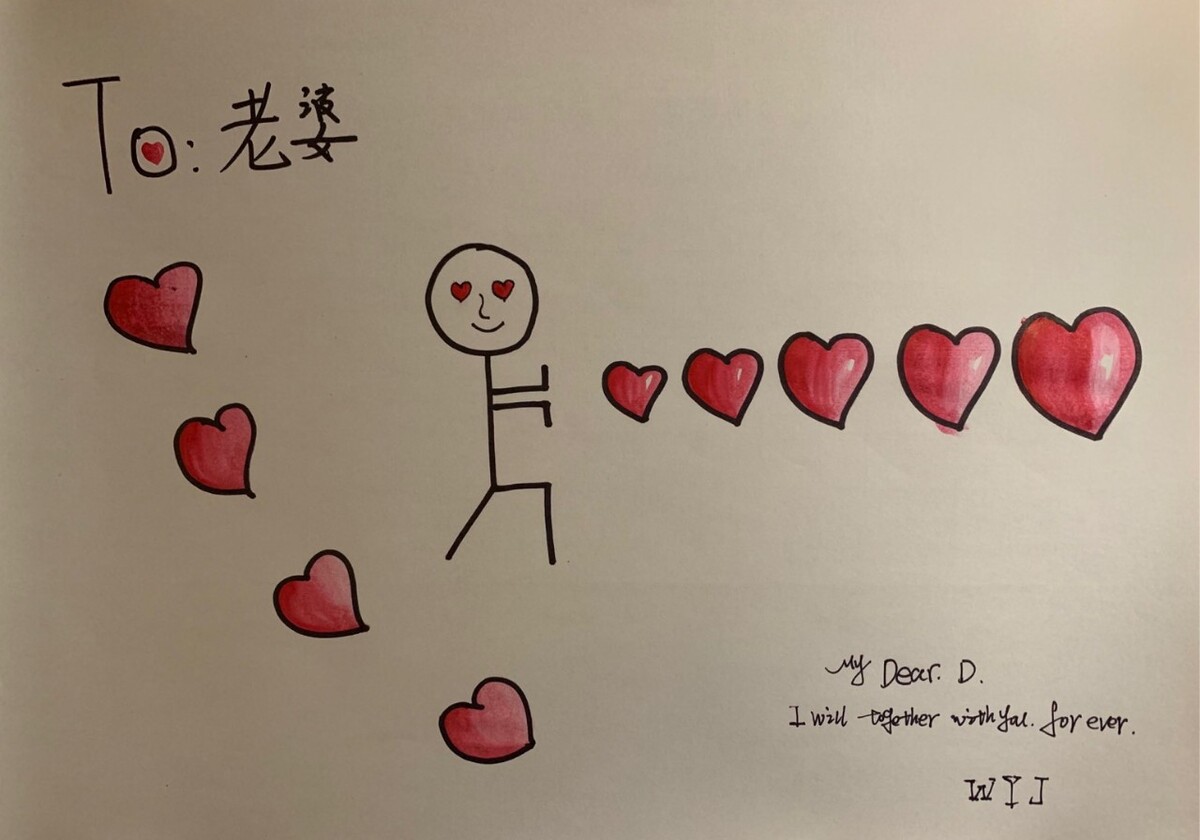 To: 老婆
My Dear. D.
I will together with you. for ever.
WYJ